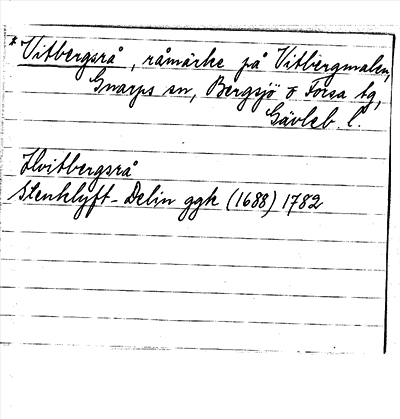 * Vitbergsrå, råmärke på Vitbergmalen,
Gnarps sn, Bergsjö o Forsa tg,
Gävleb. l.
Hvitbergsrå
Stenklyft - Delin ggk (1688) 1782